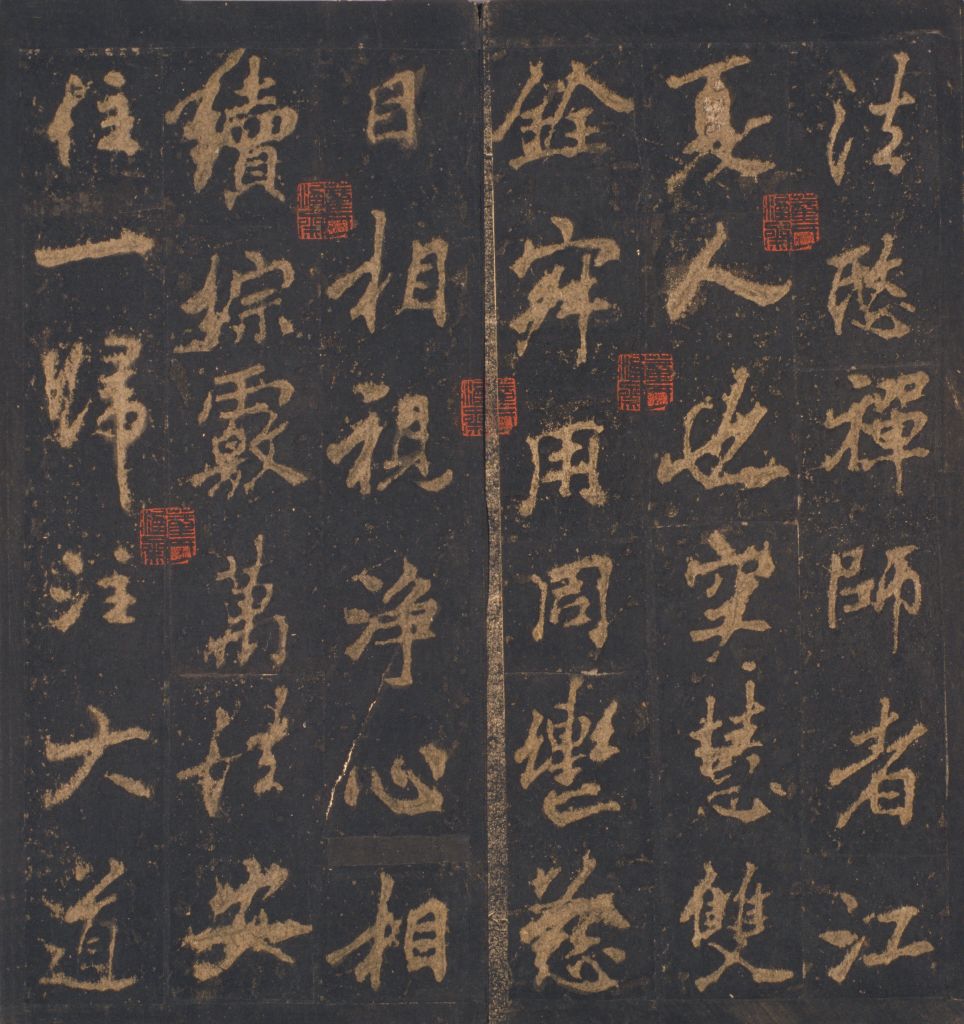 法愍禪師者江
夏人也慧雙
銓寂用同轡慈
目相視淨心相
續綜覈萬法安
住一歸注大道